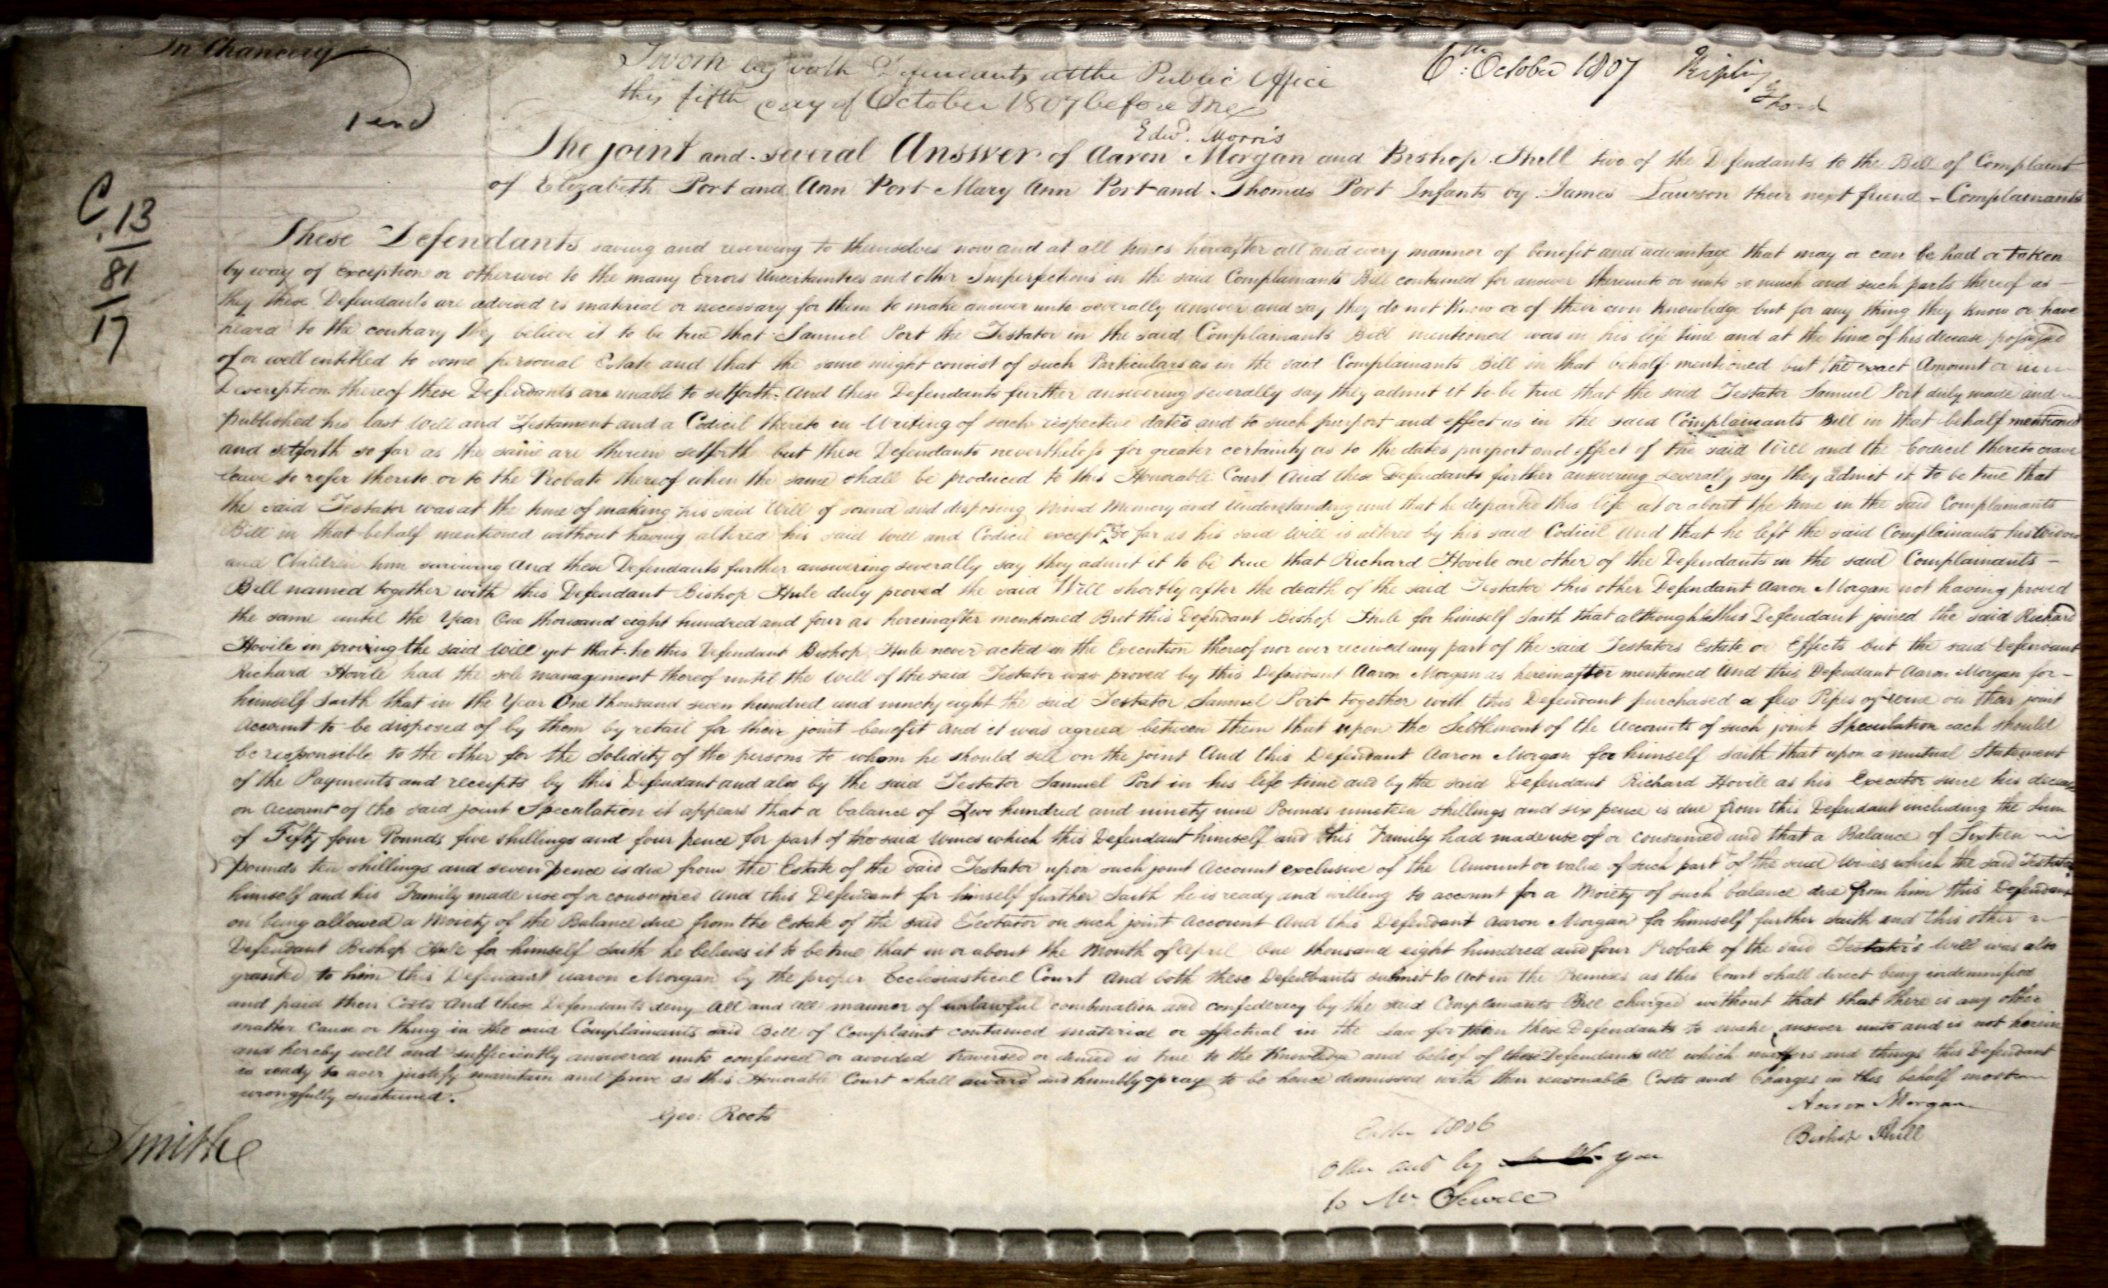 In Chancery
Sworn by both Defendants at the Public Office
this fifth day of October 1807 before Me
Edwd. Morris
6th. October 1807
Kipling
Ford
1 end
C. 13
81
17
The joint and several Answer of Aaron Morgan and Bishop Hull two of the Defendants to the Bill of Complaint
of Elizabeth Port and Ann Port Mary Ann Port and Thomas Port Infants by James Lawson their next friend - Complainants
These Defendants saving and reserving to themselves now and at all times hereafter all and every manner of benefit and advantage that may or can be had or taken
by way of Exception or otherwise to the many Errors Uncertainties and other Imperfections in the said Complainants Bill contained for answer thereunto or unto so much and such parts thereof as -
they these Defendants are advised is material or necessary for them to make answer unto severally answer and say they do not know or of their own knowledge but for any thing they know or have
heard to the contrary they believe it to be true that Samuel Port the Testator in the said Complainants Bill mentioned was in his life time and at the time of his decease possessed
of or well entitled to some personal Estate and that the same might consist of such Particulars as in the said Complainants Bill in that behalf mentioned but the exact Amount or
Description thereof these Defendants are unable to setforth And these Defendants further answering severally say they admit it to be true that the said Testator Samuel Port duly made and
published his last Will and Testament and a Codicil thereto in Writing of such respective dates and to such purport and effect as in the said Complainants Bill in that behalf mentioned
and setforth so far as the same are therein setforth but these Defendants nevertheless for greater certainty as to the dates purport and effect of the said Will and the Codicil thereto crave
leave to refer thereto or to the Probate thereof when the same shall be produced to this Honorable Court And these Defendants further answering severally say they admit it to be true that
the said Testator was at the time of making his said Will of sound and disposing Mind Memory and Understanding and that he departed this life at or about the time in the said Complainants
Bill in that behalf mentioned without having altered his said Will and Codicil except so far as his said Will is altered by his said Codicil And that he left the said Complainants his Widow
and Children him surviving And these Defendants further answering severally say they admit it to be true that Richard Hovile one other of the Defendants in the said Complainants -
Bill named together with this Defendant Bishop Hull duly proved the said Will shortly after the death of the said Testator this other Defendant Aaron Morgan not having proved
the same until the Year One thousand eight hundred and four as hereinafter mentioned But this Defendant Bishop Hull for himself saith that although this Defendant joined the said Richard
Hovile in proving the said Will yet that he this Defendant Bishop Hull never acted in the Execution thereof nor ever received any part of the said Testators Estate or Effects but the said Defendant
Richard Hovile had the sole management thereof until the Will of the said Testator was proved by this Defendant Aaron Morgan as hereinafter mentioned And this Defendant Aaron Morgan for -
himself saith that in the Year One thousand seven hundred and ninety eight the said Testator Samuel Port together with this Defendant purchased a few Pipes of Wine on their joint
Account to be disposed of by them by retail for their joint benefit And it was agreed between them that upon the Settlement of the Accounts of such joint Speculation each should
be responsible to the other for the Solidity of the persons to whom he should sell on the joint And this Defendant Aaron Morgan for himself saith that upon a mutual Statement
of the Payments and receipts by this Defendant and also by the said Testator Samuel Port in his life time and by the said Defendant Richard Hovile as his Executor since his decease
on Account of the said joint Speculation it appears that a balance of Two hundred and ninety nine Pounds nineteen shillings and six pence is due from this Defendant including the Sum
of Fifty four Pounds five shillings and four pence for part of the said Wines which this Defendant himself and this Family had made use of or consumed and that a Balance of Sixteen
pounds ten shillings and seven pence is due from the Estate of the said Testator upon such joint Account exclusive of the Amount or value of such part of the said Wines which the said Testator
himself and his Family made use of or consumed And this Defendant for himself further saith he is ready and willing to account for a Moiety of such balance due from him this Defendant
on being allowed a Moiety of the Balance due from the Estate of the said Testator on such joint Account And this Defendant Aaron Morgan for himself further saith and this other
Defendant Bishop Hull for himself saith he believes it to be true that in or about the Month of April One thousand eight hundred and four Probate of the said Testator's Will was also
granted to him this Defendant Aaron Morgan by the proper Ecclesiastical Court And both these Defendants submit to Act in the Premises as this Court shall direct being indemnified
and paid their Costs And these Defendants deny All and all manner of unlawful combination and confederacy by the said Complainants Bill charged without that that there is any other
matter cause or thing in the said Complainants said Bill of Complaint contained material or effectual in the Law for them these Defendants to make answer unto and is not herein
and hereby well and sufficiently answered unto confessed or avoided traversed or denied is true to the Knowledge and belief of these Defendants All which matters and things this Defendant
is ready to aver justify maintain and prove as this Honorable Court shall award and humbly pray to be hence dismissed with their reasonable Costs and Charges in this behalf most
wrongfully sustained.
Geo: Roots
Aaron Morgan
Bishop Hull
Smith
1806
by you
to Mr Sewell